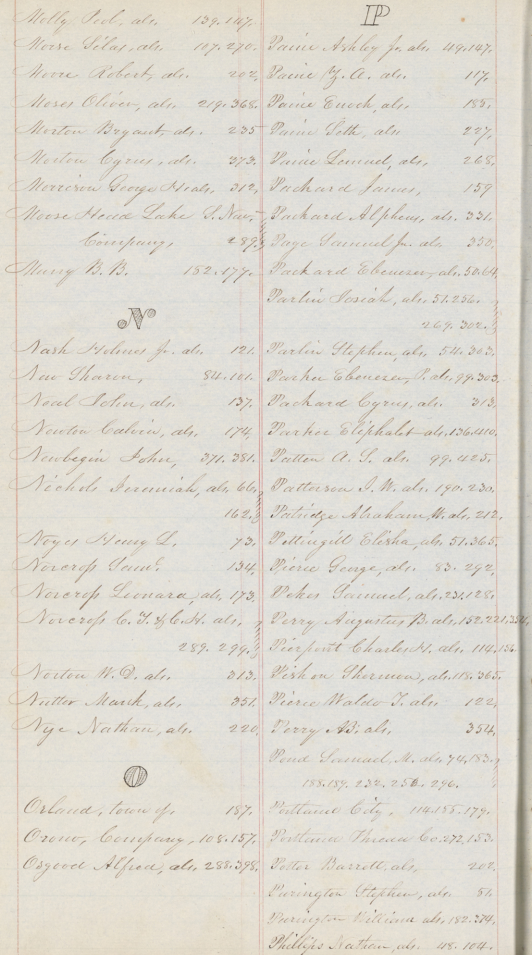 Molly Peol, als. 139.147.
Morse Silas, als. 117.270.
Moore Robert, als. 202,
Moses Oliver, als. 219.368.
Morton Bryant, als. 235
Morton Cyrus, als. 373.
Morrison George H als. 312,
Moose Head Lake S. Nav,
Company, 289,
Muny B. B. 182.177.
N
Nash Holmes Jr. als. 121.
New Sharon, 84.101.
Neal John, als. 137.
Newton Calvin, als. 174,
Newbegin John, 371.381.
Nichols Jeremiah, als. 66,
162.
Noyes Henry L. 73,
Norcross Saml. 134,
Norcross Leonard, als. 173,
Norcross C. F. & C. H. als,
289.299.
Norton W. D. als. 313.
Nutter Mark, als. 351.
Nye Nathan, als. 220,
O
Orland, town of, 187.
Orono, Company, 108.157.
Osgood Alfred, als. 288.398.
P
Paine Ashley Jr. als. 49.147.
Paine A. als. 117,
Paine Enoch, als. 188.
Paine Seth, als. 227,
Paine Lemuel, als. 268,
Packard James, 159
Packard Alpheus, als. 331.
Page Samuel Jr. als 350,
Packard Ebenezer, als. 50.64.
Parlin Josiah, als. 51.256.
269.302.
Parlin Stephen, als. 54.303.
Parker Ebenezer, P. als. 99.303.
Packard Cyrus, als. 313,
Parker Eliphalet als. 136.410.
Patten A. S. als. 99.425.
Patterson J. W. als. 190.230.
Patridge Abraham W. als. 212.
Pettingill Elisha, als. 51.365.
Pierce George, als. 83.292,
Pokes Samuel, als. 231.128.
Perry Augustus B. als. 152.221.354,
Pierpont Charles H. als. 114.136.
Pishon Shermon, als. 118.365.
Pierce Waldo T. als. 122,
Perry als. 354,
Pond Samuel M. als. 74.183.
188.189.232.256.296.
Portland City, 114.155.179.
Portland Thread Co. 272.153.
Potter Barrett, als, 202,
Purington Stephen, als. 81.
Purington William als. 182.374,
Phillips Nathan, als. 48.104.